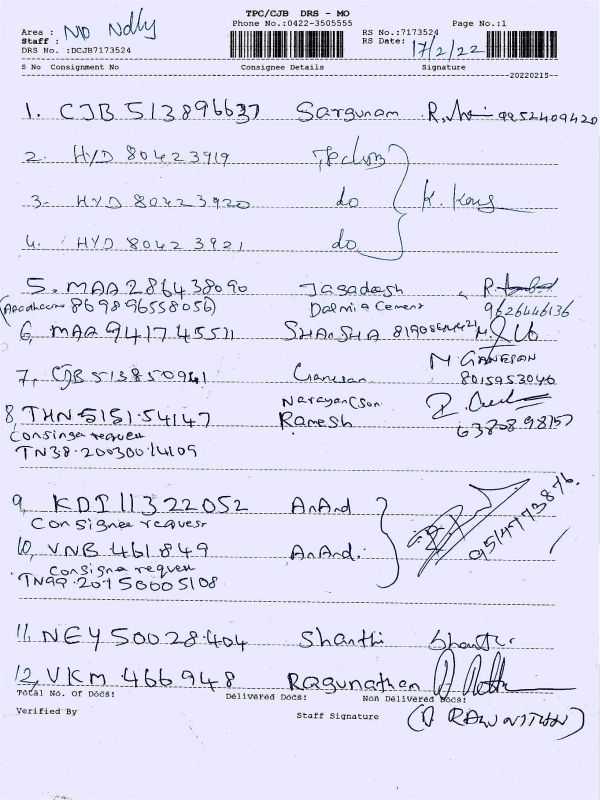 TPC/CJB DRS - MO
Area : ND Ndly Phone No.:0422-3505555 Page No.:1
Staff : RS No.:7173524
DRS No. :DCJB7173524 RS Date: 17/2/22
S No Consignment No Consignee Details Signature
20220215
1. CJB 513896637 Sargunam 9952409420
2. HYD 80423919
3. HYD 80423920 do
4. HYD 80423921 do
5. MAA 286438090 Jagadesh
(Aradhaar 869896558056) Dalmia Cement 9626446136
6, MAA 941745511 SHANSHA
M GANESAN
7, CJB 513850941 Ganesan 8015953046
Narayan(Son
8, THN 5151.54147 Ramesh 6380898157
Consinga request
TN38.20030014109
9, KDI 11322052 AnAnd
Consignee request 9514773876
10, VNB 461849 AnAnd.
Consigna request
TN99.20150005108
11, NEY 50028404 Shanthi Shanthi
12, VKM 466948 Ragunathan
Total No. of Docs: Delivered Docs: Non Delivered Docs:
Verified By Staff Signature